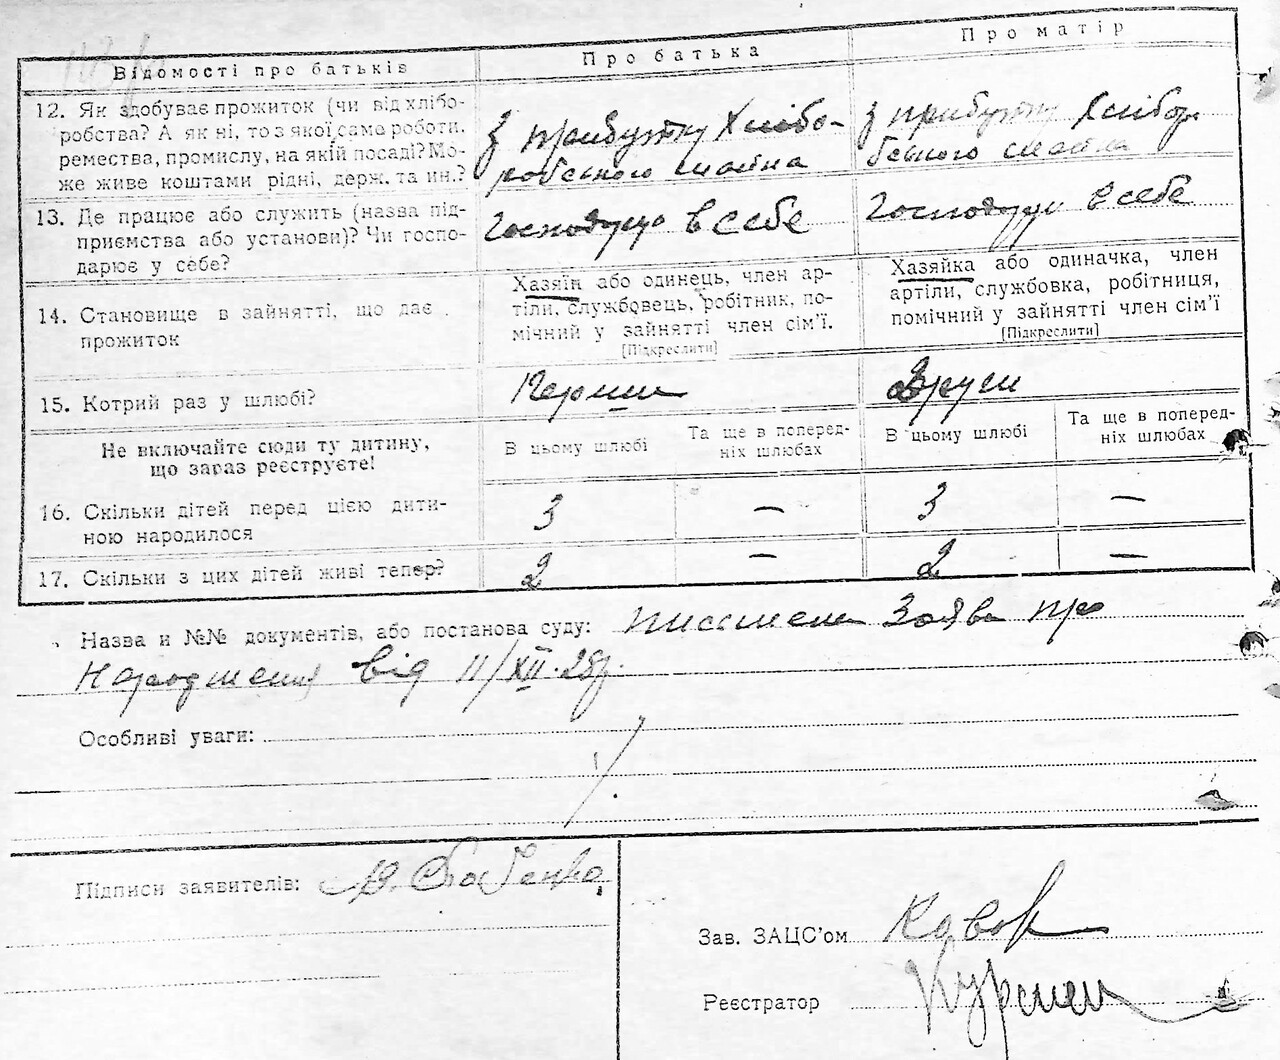 Відомості про батьків
Про батька
Про матір
12. Як здобуває прожиток (чи від хлібо-
робства? А як ні, то з якої саме роботи,
ремества, промислу, на якій посаді? Мо-
же живе коштами рідні, держ. та ин.?
З прибутку Хлібо-
робського майна
З прибутку Хлібор
бського майна
13. Де працює або служить (назва під-
приємства або установи)? Чи госпо-
дарює у себе?
Господарує в себе
Господарує в себе
14. Становище в зайнятті, що дає
прожиток
Хазяїн або одинець, член ар-
тіли, службовець, робітник, по-
мічний у зайнятті член сім'ї.
[Підкреслити]
Хазяйка або одиначка, член
артіли, службовка, робітниця,
помічний у зайнятті член сім'ї
[Підкреслити]
15. Котрий раз у шлюбі?
Перший
Другий
Не включайте сюди ту дитину,
що зараз реєструєте!
В цьому шлюбі
Та ще в поперед-
ніх шлюбах
В цьому шлюбі
Та ще в поперед-
ніх шлюбах
16. Скільки дітей перед цією дити-
ною народилося
3 — 3 —
17. Скільки з цих дітей живі тепер?
2 — 2 —
Назва и №№ документів, або постанова суду: Заява про
Народження від 11/XII-28р.
Особливі уваги:
Підписи заявителів:
Зав. ЗАЦС'ом
Реєстратор